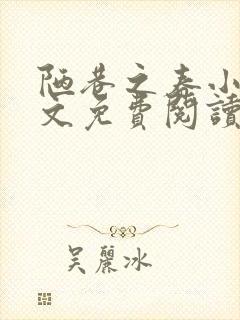 陋巷之春小
文免費閱讀
吴麗冰